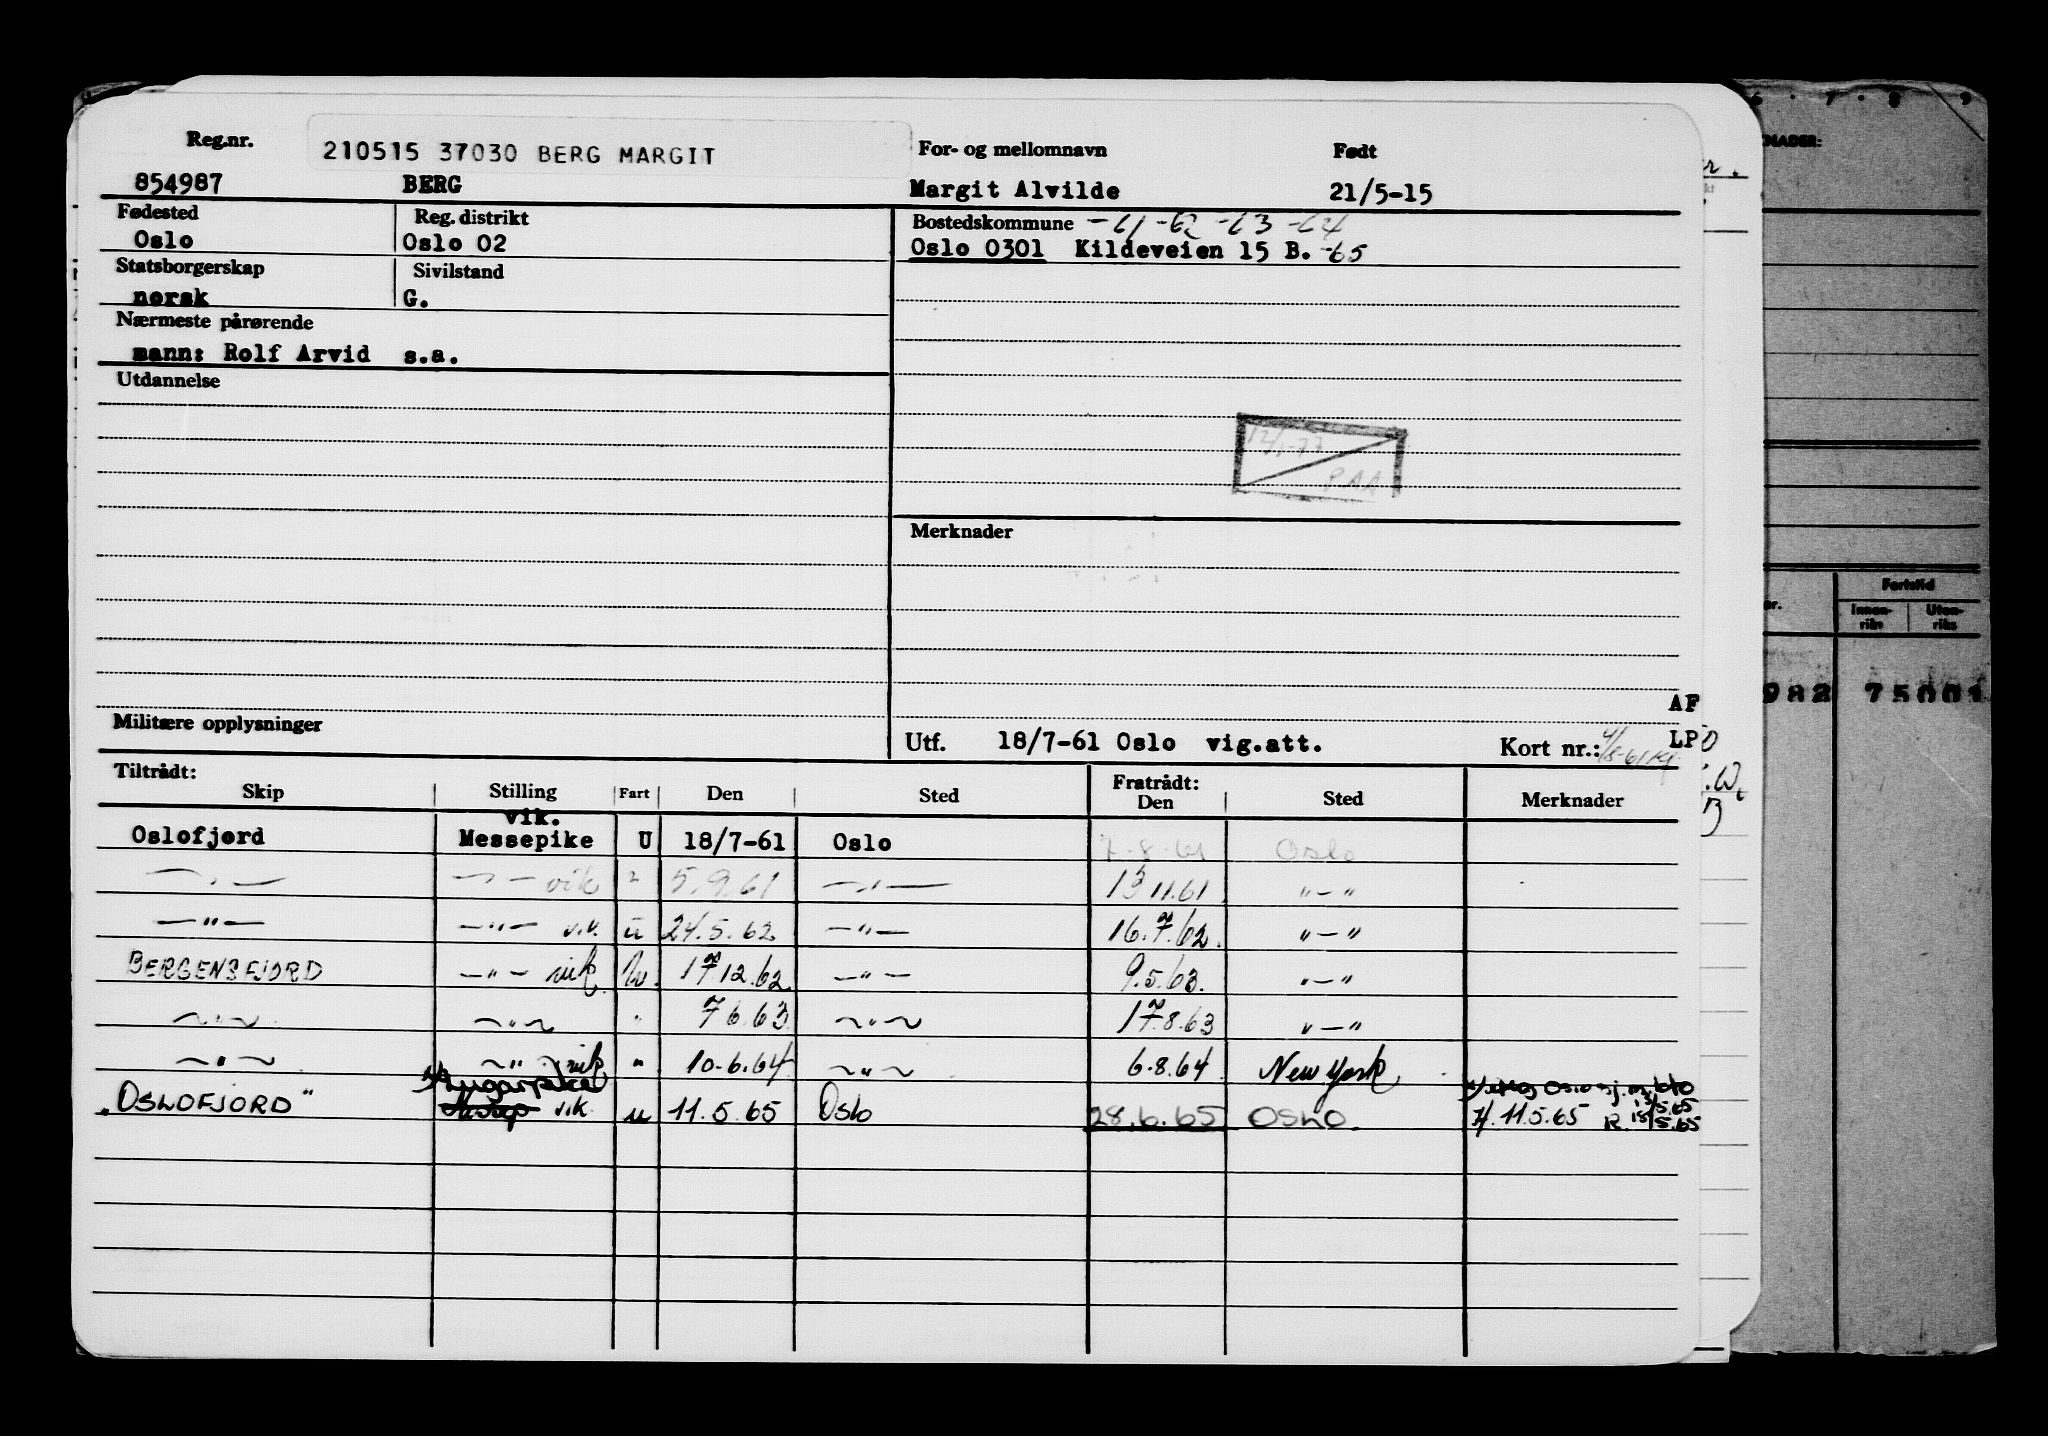 Reg.nr.
210515 37030 BERG MARGIT
For- og mellomnavn
Født
854987 BERG
Margit Alvilde
21/5-15
Fødested
Reg. distrikt
Bostedskommune -61 -62 -63 -64
Oslo
Oslo 02
Oslo 0301 Kildeveien 15 B. -65
Statsborgerskap
Sivilstand
norsk
G.
Nærmeste pårørende
mann: Rolf Arvid s.a.
Utdannelse
12/1-77
PAA
Merknader
Militære opplysninger
Utf. 18/7-61 Oslo vig.att.
Kort nr.:
Tiltrådt:
Fratrådt:
Skip Stilling Fart Den Sted Den Sted Merknader
vik.
Oslofjord Messepike U 18/7-61 Oslo 7.8.61 Oslo
—"— —"— vik " 5.9.61 —"— 13 11.61 "—"
—"— —"— v.v. u 24.5.62 —"— 16.7.62. "—"
BERGENSFJORD —"— vik U. 17 12.62 —"— 9.5.63. "—"
—"— —"— " 7 6.63 —"— 17.8.63 "—"
—"— —"— vik " 10.6.64 —"— 6.8.64 New York
Lugarpike
"OSLOFJORD" vik. u 11.5.65 Oslo 28.6.65 OSLO. 11.5.65 R. 15/5.65
AF
LPO
MADER:
6 . 7 . 8 9
Fartstid
Innen-
riks
Uten-
riks
982 75001